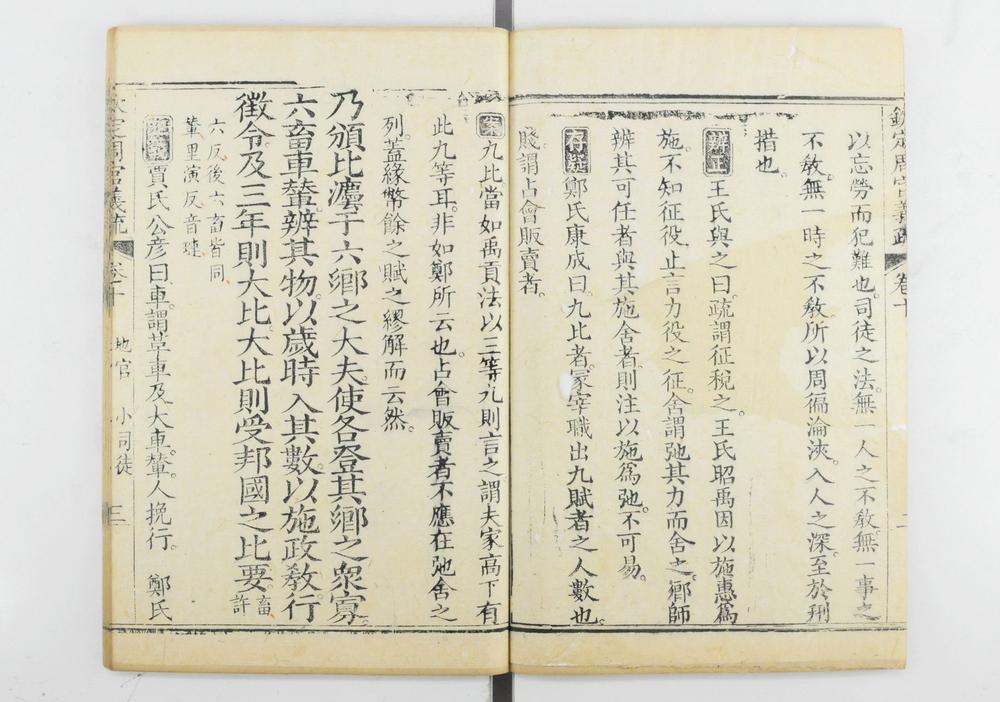 欽定周官義疏 卷十
以忘勞而犯難也司徒之法無一人之不教無一事之
不教無一時之不教所以周徧淪浹入人之深至於刑
措也
辨正 王氏與之曰疏謂征稅之王氏昭禹因以施惠爲
施不知征役止言力役之征舍謂弛其力而舍之鄉師
辨其可任者與其施舍者則注以施爲弛不可易
存疑 鄭氏康成曰九比者冡宰職出九賦者之人數也
賤謂占會販賣者
案 九比當如禹貢法以三等九則言之謂夫家高下有
此九等耳非如鄭所云也占會販賣者不應在弛舍之
列蓋緣幣餘之賦之繆解而云然
乃頒比灋于六鄉之大夫使各登其鄉之衆寡
六畜車輦辨其物以歲時入其數以施政教行
徵令及三年則大比大比則受邦國之比要 畜許
六反後六畜皆同
輦里演反音璉
賈氏公彦曰車謂革車及大車輦人挽行 鄭氏
欽定周官義疏 卷十 地官 小司徒 三